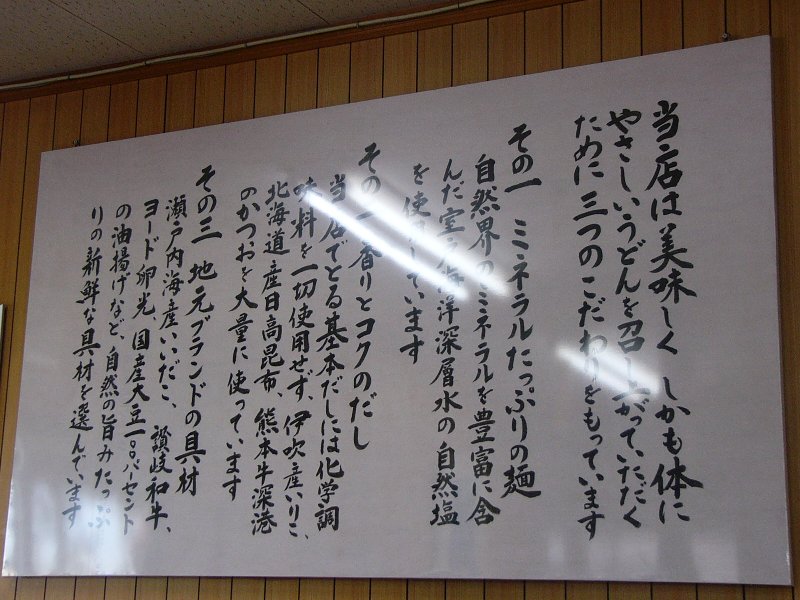 当店は美味しく しかも体に
やさしいうどんを召し上がっていただく
ために 三つのこだわりをもっています
その一 ミネラルたっぷりの麺
自然界のミネラルを豊富に含
んだ室戸海洋深層水の自然塩
を使用しています
その二 香りとコクのだし
当店でとる基本だしには化学調
味料を一切使用せず、伊吹産いりこ、
北海道産日高昆布、熊本牛深港
のかつおを大量に使っています
その三 地元ブランドの具材
瀬戸内海産いいだこ、讃岐和牛、
ヨード卵光 国産大豆一〇〇パーセント
の油揚げなど、自然の旨みたっぷ
りの新鮮な具材を選んでいます